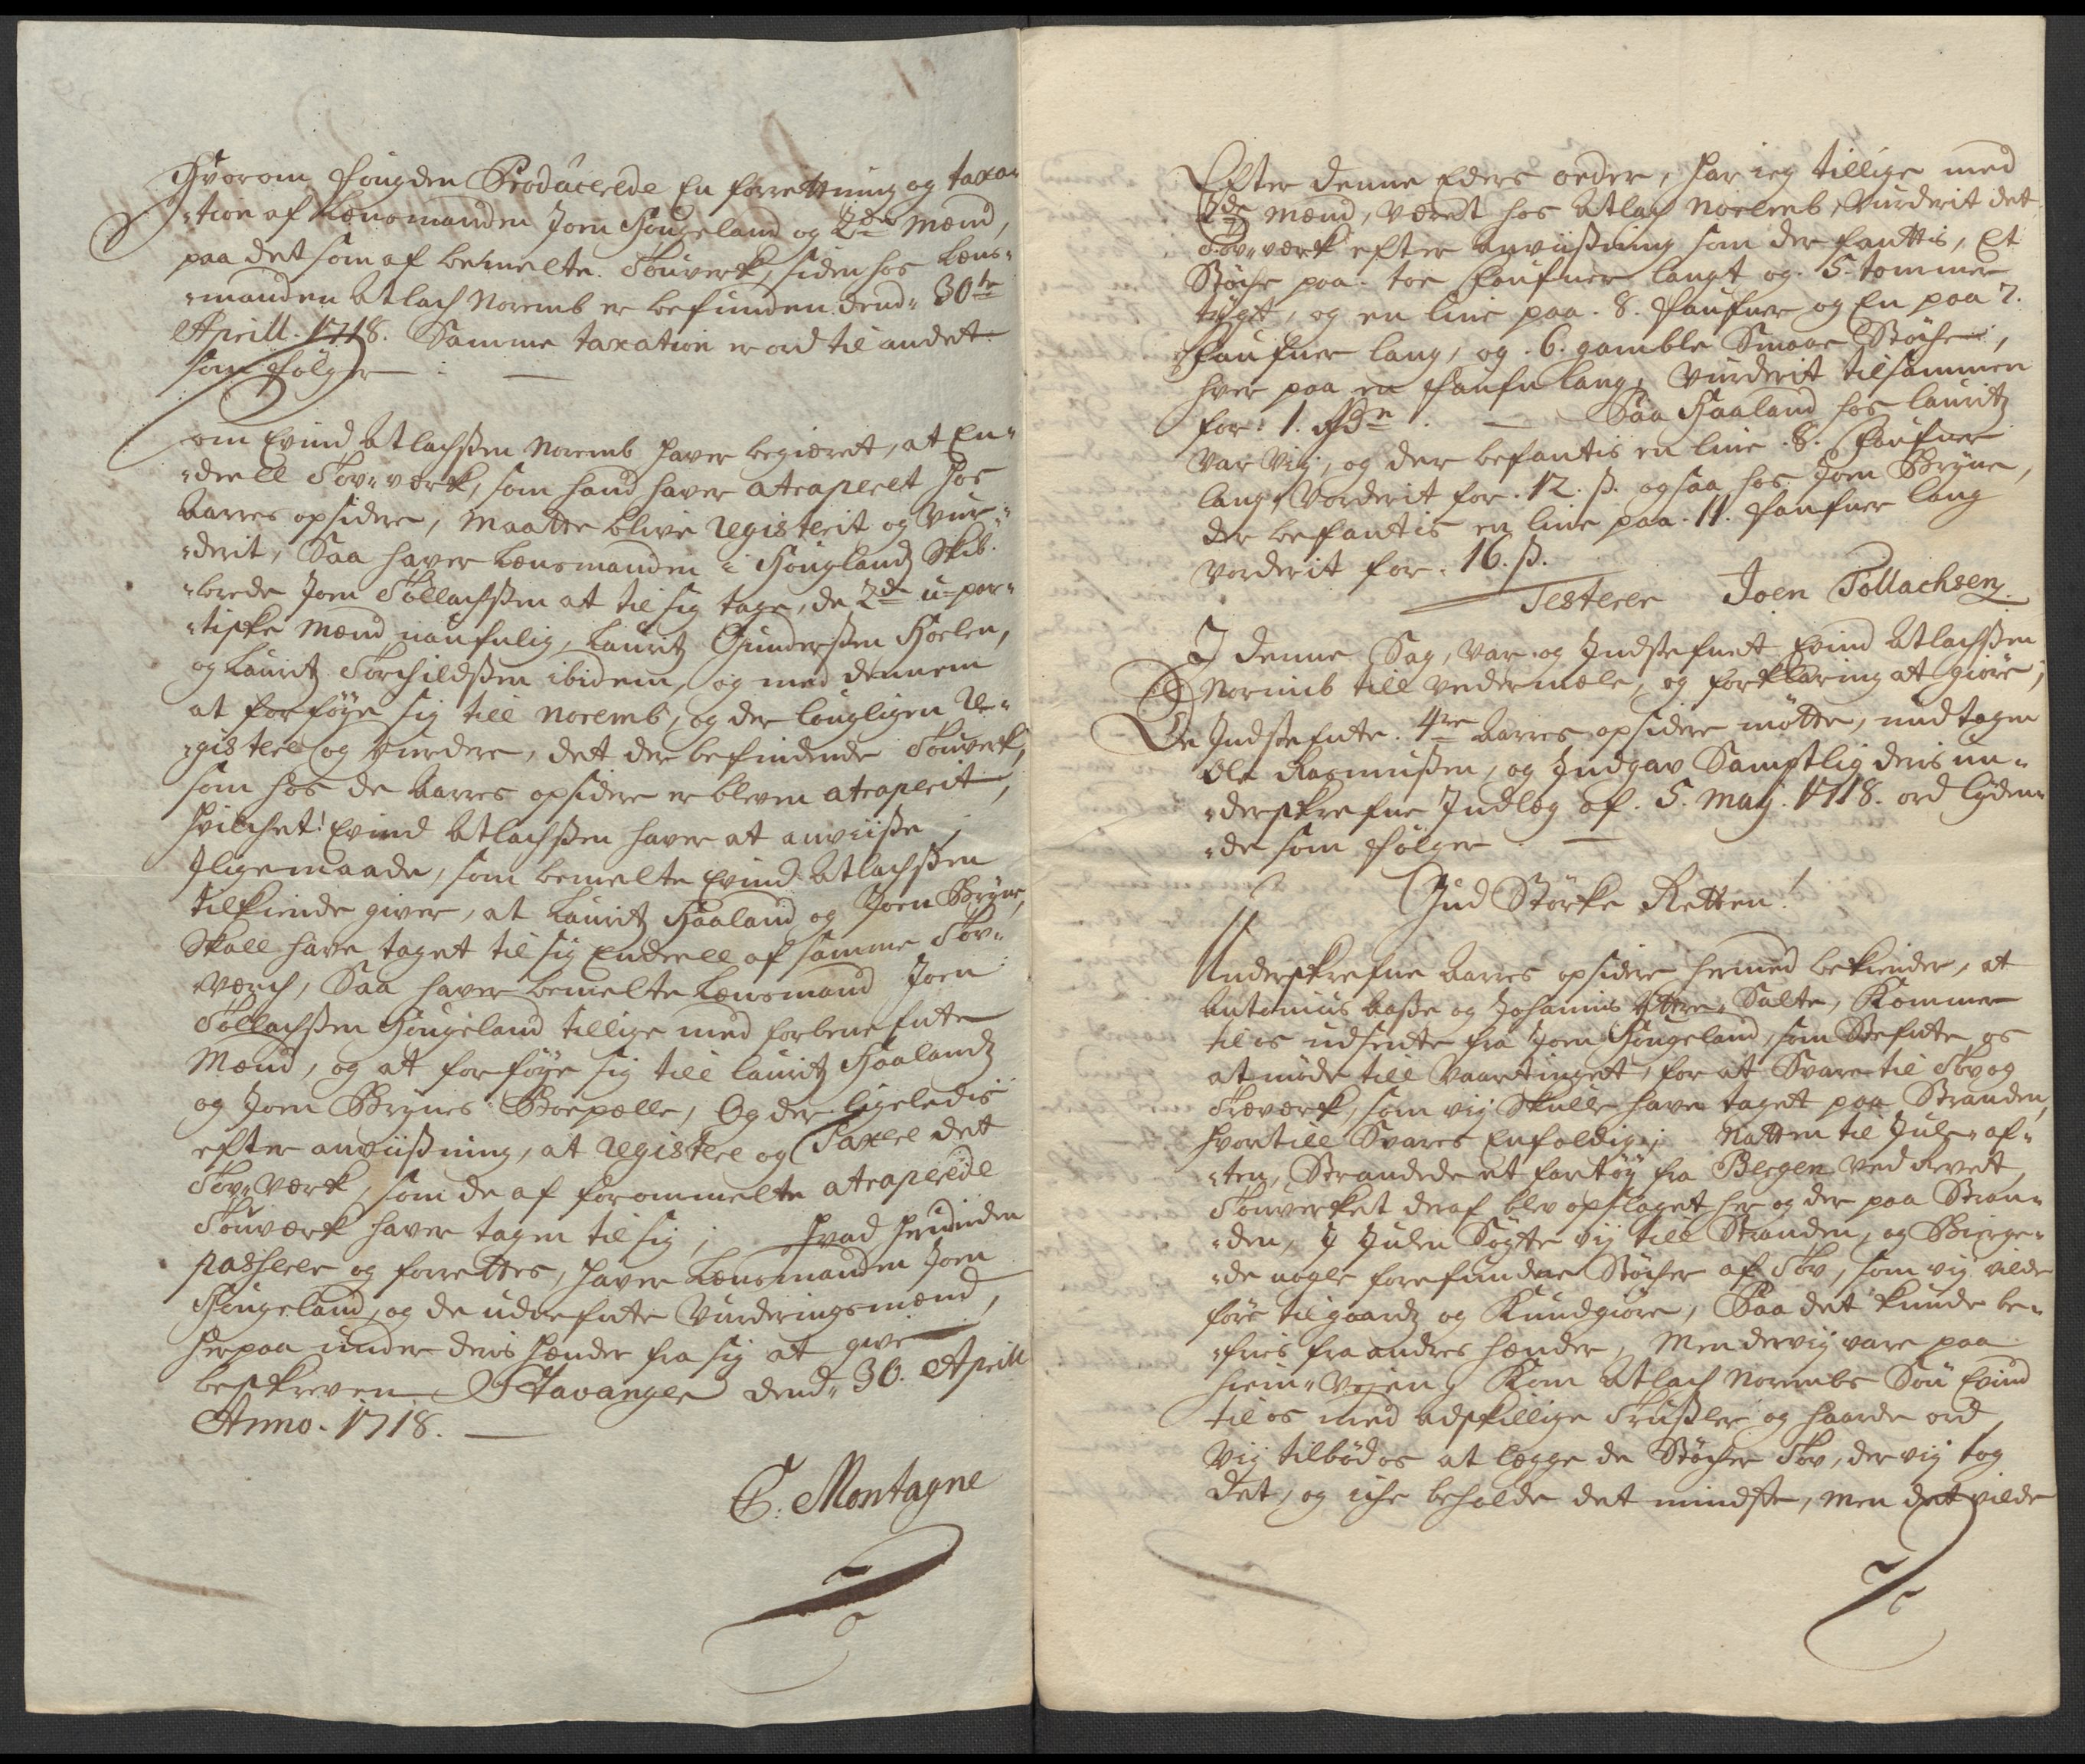 Hvorom fougden Producerede En forrettning og taxa-
-tion af Lensmanden Joen Hougeland og 2de Mænd,
paa det som af bemelte Touverk, siden hos Lens-
-manden Atlach Noremb er befunden dend 30te
Aprill 1718. Samme taxation er ord til andet
som følger
Som Evind Atlachsen Noremb haver begiæret, at En-
-deell Tov-værk, som hand haver atraperet hos
Aarres opsidere, maatte blive Registerit og Vur-
-derit, Saa haver Lensmanden i Houglandz Skib-
-brede Joen Tollachsen at til sig tage, de 2de u-par-
-tiske Mænd naufnlig, Lauritz Gundersen Hoelen,
og Lauritz Torchildsen ibidem, og med dennem
at forføye sig till Noremb, og der lougligen Re-
-gistere og Vurdere, det der befindende Touverk,
som hos de Aarres opsidere er bleven atraperit,
hvilchet Evind Atlachsen haver at anviisse
Jligemaade, som bemelte Evind Atlachsen
tilkiende giver, at Lauritz Haaland og Joen Bryne,
Skall have taget til sig Endeell af samme Tov-
Værch, Saa haver bemelte Lensmand Joen
Tollachsen Hougeland tillige med forbenefnte
Mænd, og at forføye sig till Lauritz Haalandz
og Joen Brynes Boepælle, Og der ligeledis
efter anviisning, at Registere og Taxere det
Tov-værk, som de af forommelte atraperede
Touværk haver tagen til sig; Hvad herudinden
passerer og forrettes, haver Lensmanden Joen
Hougeland, og de udnefnte Vurderingsmænd,
herpaa under deris hænder fra sig at give
beskreven Stavanger dend 30. Aprill
Anno. 1718.
C. Montagne
Efter denne Eders order, har ieg tillige med
2de Mænd, Været hos Atlach Noremb, Vurderit det
Tov-værk efter anviisning som der fanttis, Et
Støche paa toe faufner langt og 5 tommer
tygt, og en line paa 8. faufner og En paa 7.
faufner lang, og 6. gamble Smaae Støcher,
hver paa en faufn lang, Vurderit tilsammen
for 1. Rdr. Paa Haaland hos Lauritz
Var Vij, og der befantis en line 8. faufner
lang, Vorderit for 12. s. ogsaa hos Joen Bryne,
der befantis en line paa 11. faufner lang
Vorderit for 16. s.
Testerer Joen Tollachsen
I denne Sag, var og Indstefnet Evind Atlachsen
Noremb till Vedermæle, og forklaring at giøre;
De Indstefnte 4re Aarres opsidere møtte, undtagen
Ole Rasmussen, og Indgav Samptlig deris un-
-derskrefne Indlæg af 5. Maij 1718. ord lyden-
-de som følger
Gud Störke Retten!
Underskrefne Aarres opsidere hermed bekiender, at
Antonius Aasse og Johannis Yttre Salte, Kommer
til os udsendte fra Joen Hougeland, som Stefnte os
at møde till Vaartinget, for at Svare til Tov og
Træværk, som vij Skulle have taget paa Stranden,
hvortill Svares Enfoldig; Natten til Jule-af-
-ten, Strandede et fartøy fra Bergen ved Revet,
Touverket deraf blev opslaget her og der paa Stran-
-den, J Julen Søgte vij till Stranden, og Bierge-
-de nogle forefundne Støcher af Tov, som vij vilde
føre til gaardz og Kundgiøre, Saa det kunde be-
-fries fra andres hænder, Men der vij vare paa
hiem-Veyen, Kom Atlach Norembs Søn Evind
til os med adskillige Trussler og haarde ord,
Vij tilbød os at legge de Støcher Tov, der vij tog
det, og iche beholde det mindste, men det vilde